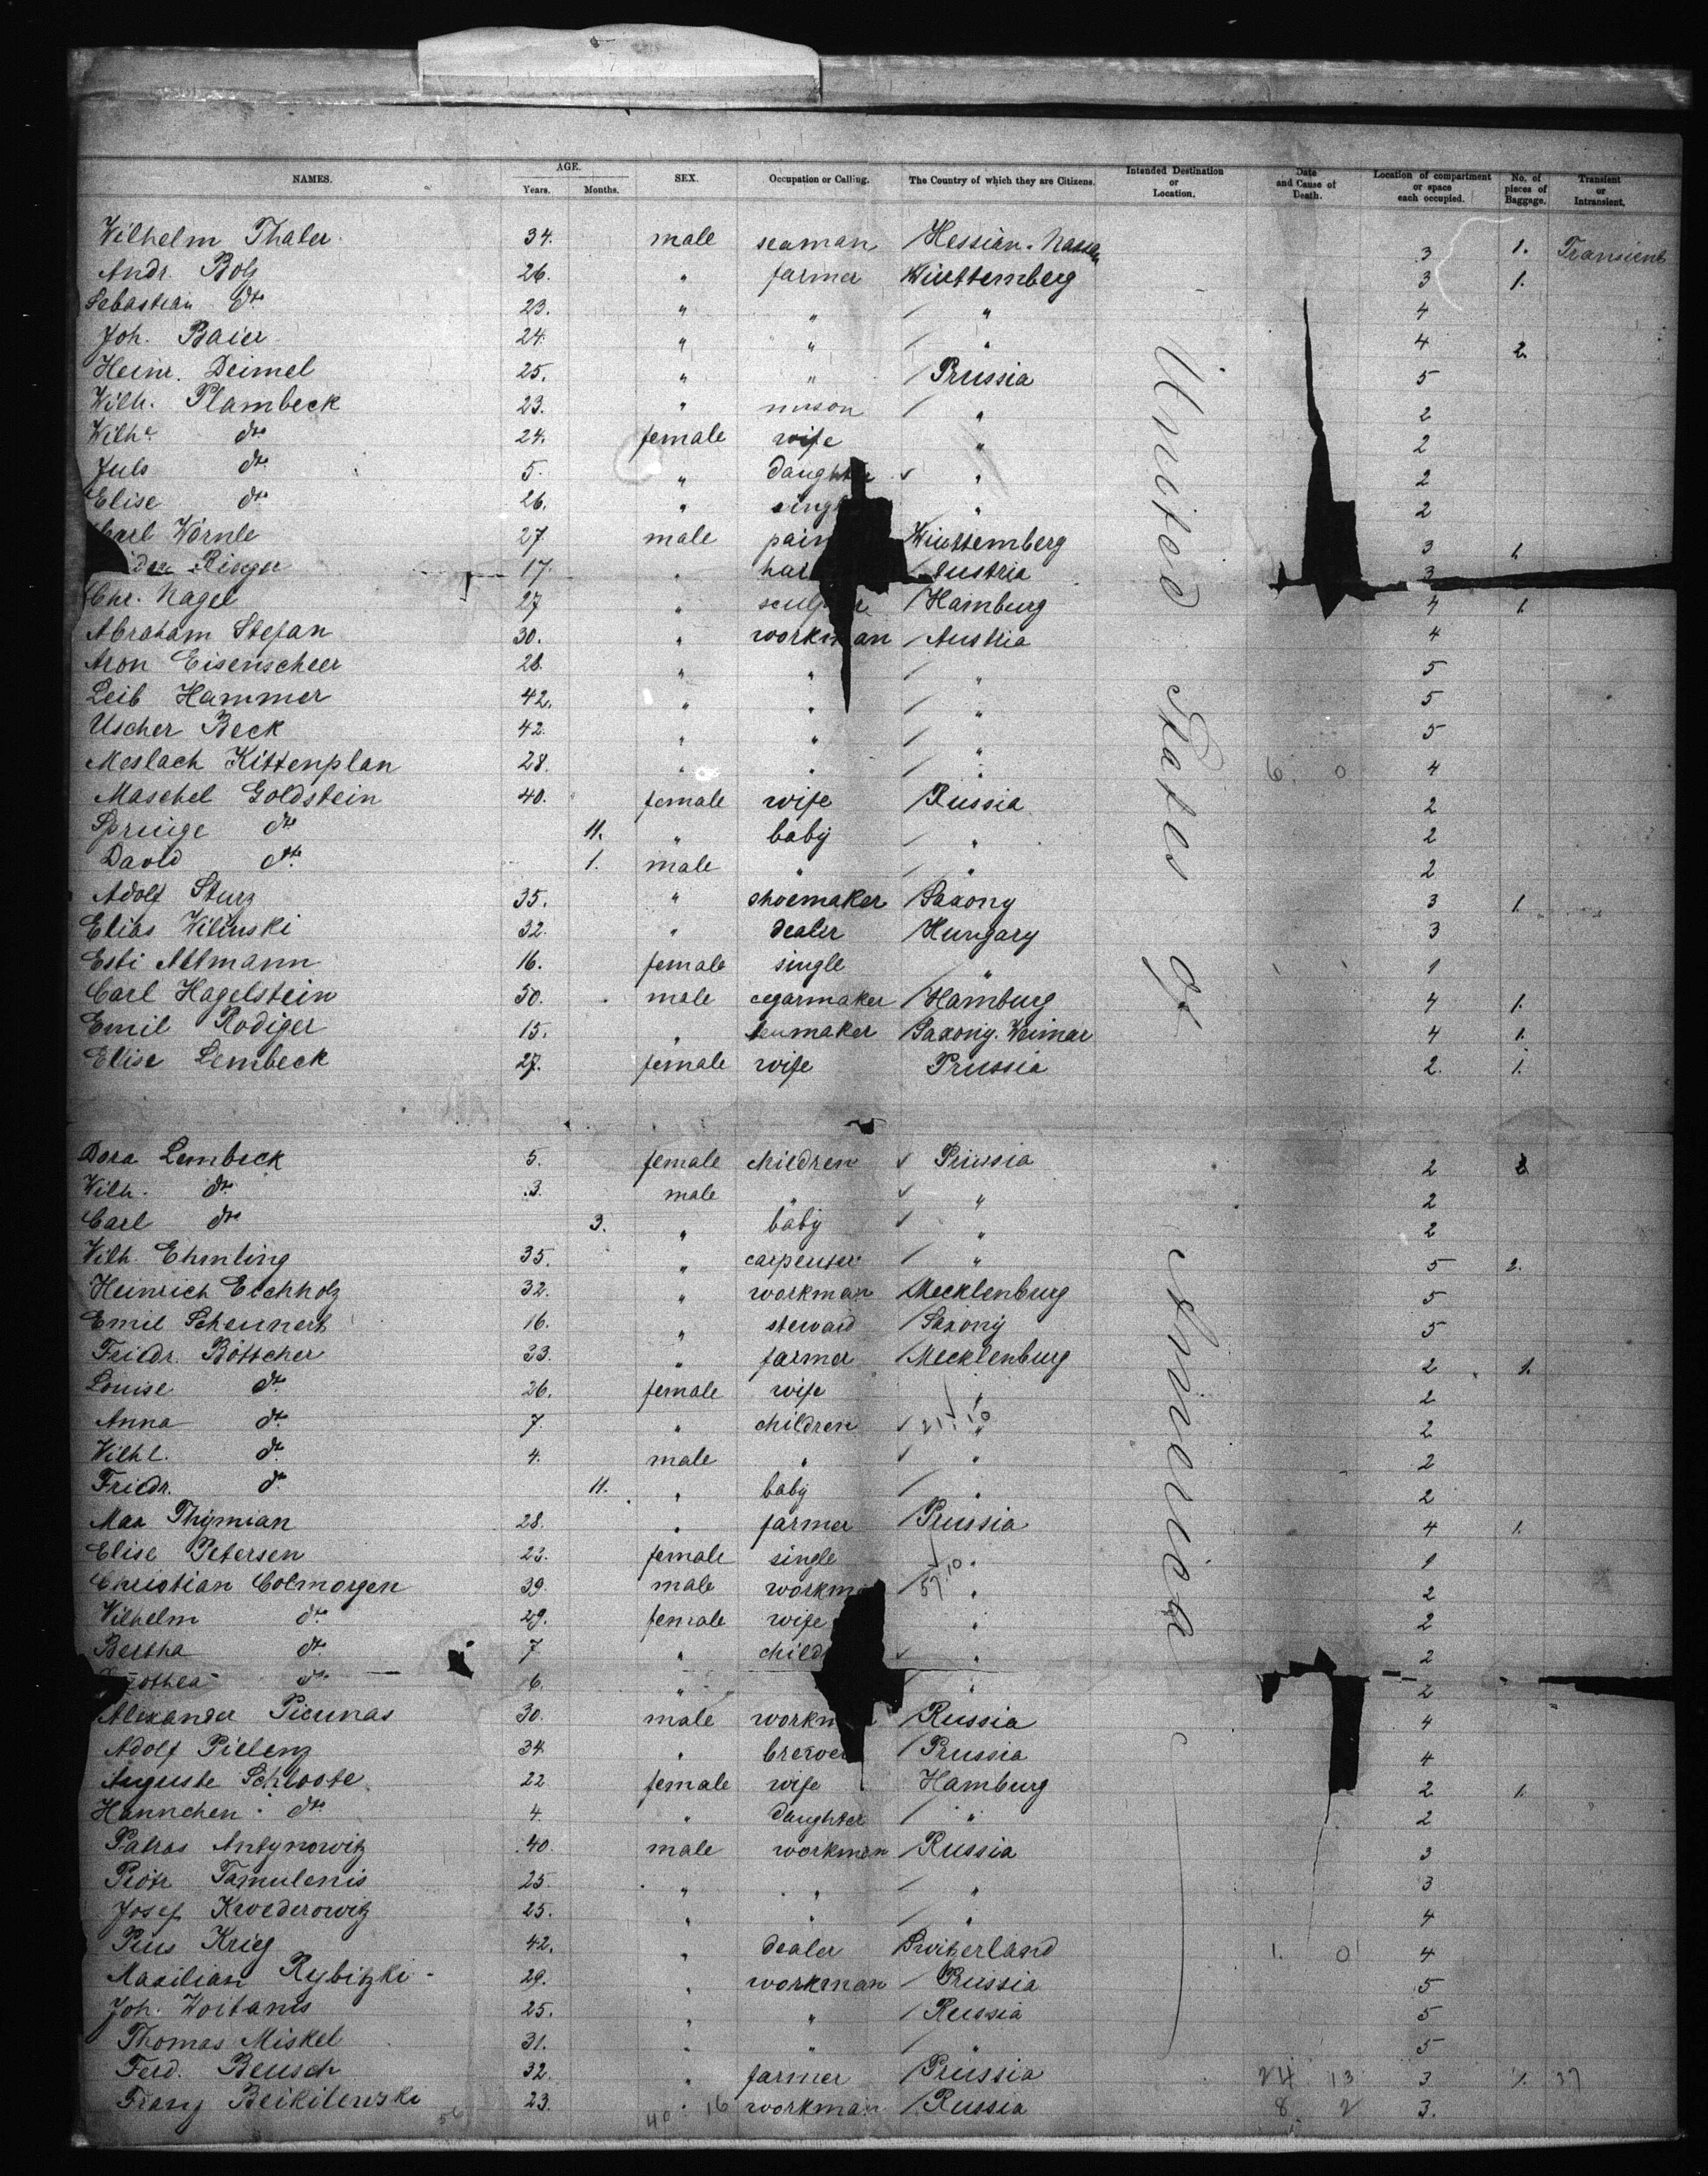 NAMES. AGE. Years. Months. SEX. Occupation or Calling. The Country of which they are Citizens. Intended Destination or Location. Date and Cause of Death. Location of compartment or space each occupied. No. of pieces of Baggage. Transient or Intransient.
Wilhelm Thaler 34. male seaman Hessian. Nassau 3 1. Transient
Andr. Bolz 26. " farmer Württemberg 3 1.
Sebastian do 23. " " " 4
Joh. Baier 24. " " " 4 2.
Heinr. Deimel 25. " " Prussia 5
Wilh. Plambeck 23. " mason " 2
Wilhe do 24. female wife " 2
Juls do 5. " daughter " 2
Elise do 26. " singl " 2
Carl Wörnle 27 male pain Württemberg 3 1.
Ringer 17. " Austria 3
Chr. Nagel 27 " sculptor Hamburg 4 1.
Abraham Stefan 30. " workman Austria 4
Aron Eisenscheer 28. " " " 5
Leib Hammer 42. " " " 5
Uscher Beck 42. " " " 5
Meslach Kittenplan 28. " " " 6. 0 4
Maschel Goldstein 40. female wife Russia 2
Springe do 11. " baby " 2
David do 1. male " " 2
Adolf Sturz 35. " shoemaker Saxony 3 1.
Elias Vilinski 32. " dealer Hungary 3
Esti Altmann 16. female single " 1
Carl Hagelstein 50. male cegarmaker Hamburg 4 1.
Emil Rodiger 15. " maker Saxony. Weimar 4 1.
Elise Lembeck 27. female wife Prussia 2. 1.
Dora Lembeck 5. female children Prussia 2
Wilh. do 3. male " " 2
Carl do 3. " baby " 2
Wilh. Ehmling 35. " carpenter " 5 2.
Heinrich Eichholz 32. " workman Mecklenburg 5
Emil Scheunert 16. " steward Saxony 5
Friedr. Böttcher 33. " farmer Mecklenburg 2 1.
Louise do 26. female wife " 2
Anna do 7. " children " 2
Wilhl. do 4. male " " 2
Friedr. do 11. " baby " 2
Max Thymian 28. " farmer Prussia 4 1.
Elise Petersen 23. female single " 1
Christian Colmorgen 39. male workma " 2
Wilhelm do 29. female wife " 2
Bertha do 7 " childr " 2
othea do 6. " " 2
Alexander Picunas 30. male workm Russia 4
Adolf Pielenz 34 " brewer Prussia 4
Auguste Schloote 22 female wife Hamburg 2 1.
Hannchen do 4. " daughter " 2
Patros Antynowitz 40. male workman Russia 3
Piotr Tamulenis 25. " " " 3
Josef Kroederowitz 25. " " " 4
Pius Krieg 42. " dealer Switzerland 1. 0 4
Maxilian Rybitzki 29. " workman Prussia 5
Joh. Woitanis 25. " " Russia 5
Thomas Miskel 31. " " " 5
Ferd. Beusch 32. " farmer Prussia 24 13 3 1. 37
Franz Beikilewski 23. " workman Russia 8 2 3.
United States of America